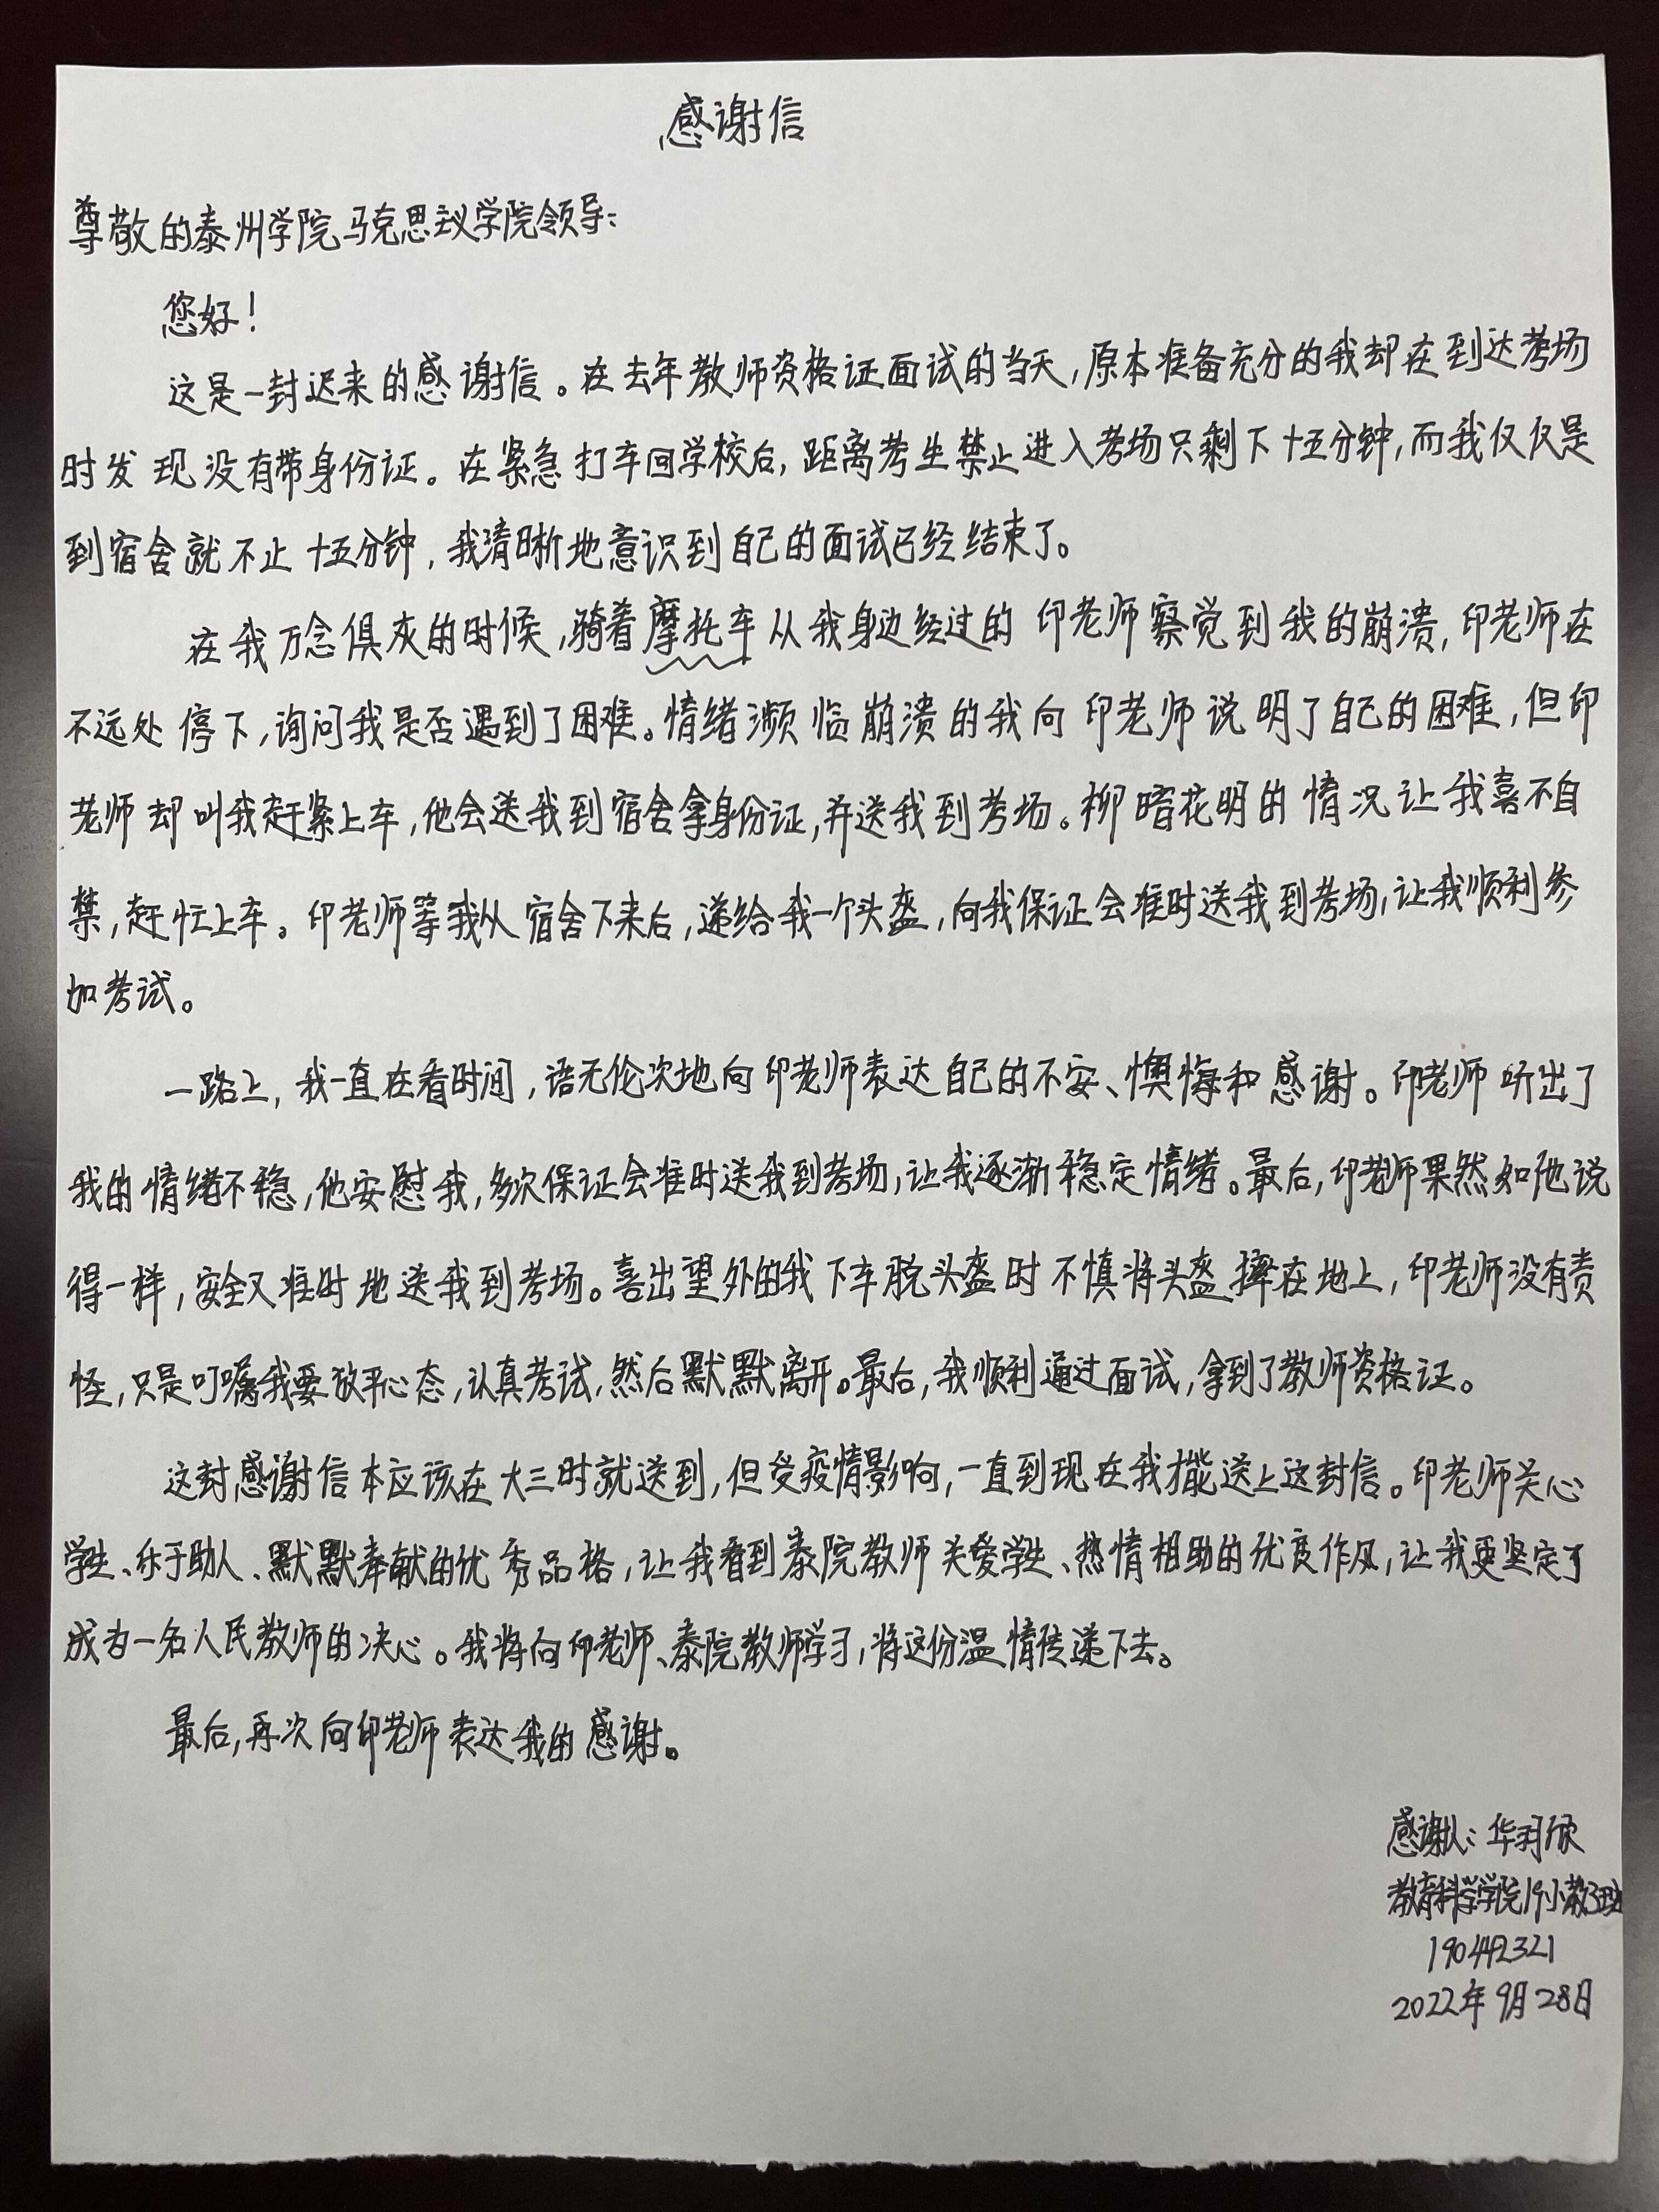 感谢信
尊敬的泰州学院马克思主义学院领导:
您好!
这是一封迟来的感谢信。在去年教师资格证面试的当天,原本准备充分的我却在到达考场
时发现没有带身份证。在紧急打车回学校后,距离考生禁止进入考场只剩下十五分钟,而我仅仅是
到宿舍就不止十五分钟,我清晰地意识到自己的面试已经结束了。
在我万念俱灰的时候,骑着摩托车从我身边经过的印老师察觉到我的崩溃,印老师在
不远处停下,询问我是否遇到了困难。情绪濒临崩溃的我向印老师说明了自己的困难,但印
老师却叫我赶紧上车,他会送我到宿舍拿身份证,并送我到考场。柳暗花明的情况让我喜不自
禁,赶忙上车。印老师等我从宿舍下来后,递给我一个头盔,向我保证会准时送我到考场,让我顺利参
加考试。
一路上,我一直在看时间,语无伦次地向印老师表达自己的不安、懊悔和感谢。印老师听出了
我的情绪不稳,他安慰我,多次保证会准时送我到考场,让我逐渐稳定情绪。最后,印老师果然如他说
得一样,安全又准时地送我到考场。喜出望外的我下车脱头盔时不慎将头盔摔在地上,印老师没有责
怪,只是叮嘱我要放平心态,认真考试,然后默默离开。最后,我顺利通过面试,拿到了教师资格证。
这封感谢信本应该在大三时就送到,但受疫情影响,一直到现在我才能送上这封信。印老师关心
学生、乐于助人、默默奉献的优秀品格,让我看到泰院教师关爱学生、热情相助的优良作风,让我更坚定了
成为一名人民教师的决心。我将向印老师、泰院教师学习,将这份温情传递下去。
最后,再次向印老师表达我的感谢。
感谢人:华羽欣
教育科学学院19小教3班
190442321
2022年9月28日